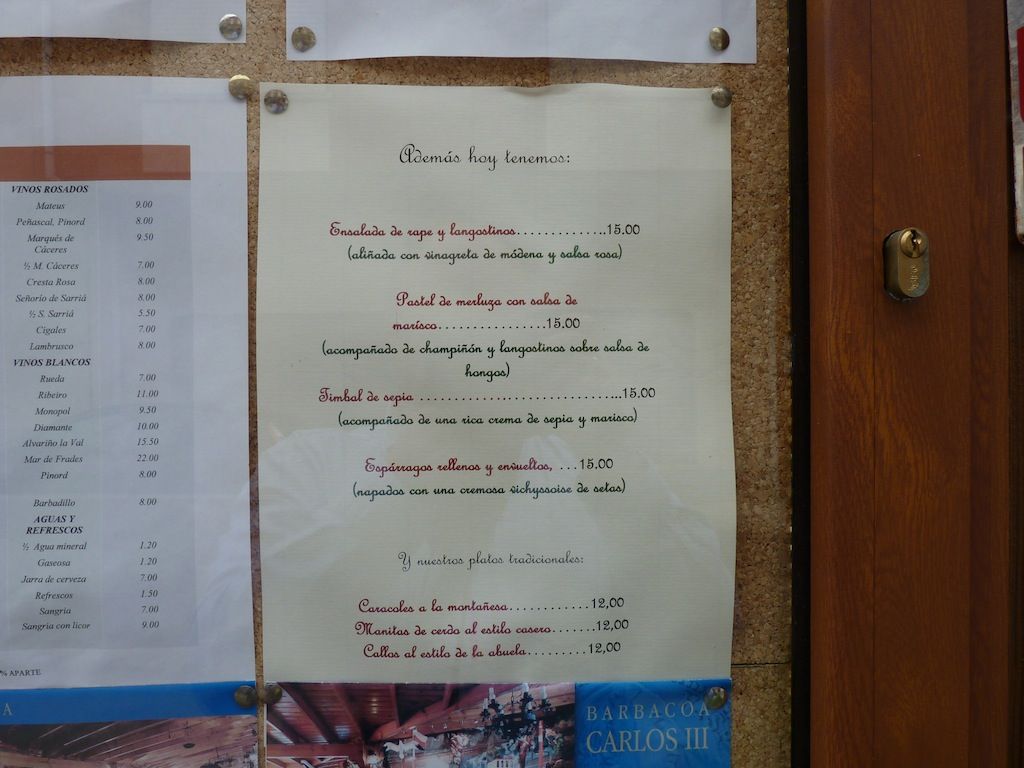 VINOS ROSADOS
Mateus 9.00
Peñascal, Pinord 8.00
Marqués de 9.50
Cáceres
½ M. Cáceres 7.00
Cresta Rosa 8.00
Señorío de Sarriá 8.00
½ S. Sarriá 5.50
Cigales 7.00
Lambrusco 8.00
VINOS BLANCOS
Rueda 7.00
Ribeiro 11.00
Monopol 9.50
Diamante 10.00
Alvariño la Val 15.50
Mar de Frades 22.00
Pinord 8.00
Barbadillo 8.00
AGUAS Y
REFRESCOS
½ Agua mineral 1.20
Gaseosa 1.20
Jarra de cerveza 7.00
Refrescos 1.50
Sangria 7.00
Sangria con licor 9.00
% APARTE
A
Además hoy tenemos:
Ensalada de rape y langostinos..............15.00
(aliñada con vinagreta de módena y salsa rosa)
Pastel de merluza con salsa de
marisco................15.00
(acompañado de champiñón y langostinos sobre salsa de
hongos)
Timbal de sepia ..............................15.00
(acompañado de una rica crema de sepia y marisco)
Espárragos rellenos y envueltos, ...15.00
(napados con una cremosa vichyssoise de setas)
Y nuestros platos tradicionales:
Caracoles a la montañesa............12,00
Manitas de cerdo al estilo casero.......12,00
Callos al estilo de la abuela.........12,00
BARBACOA
CARLOS III